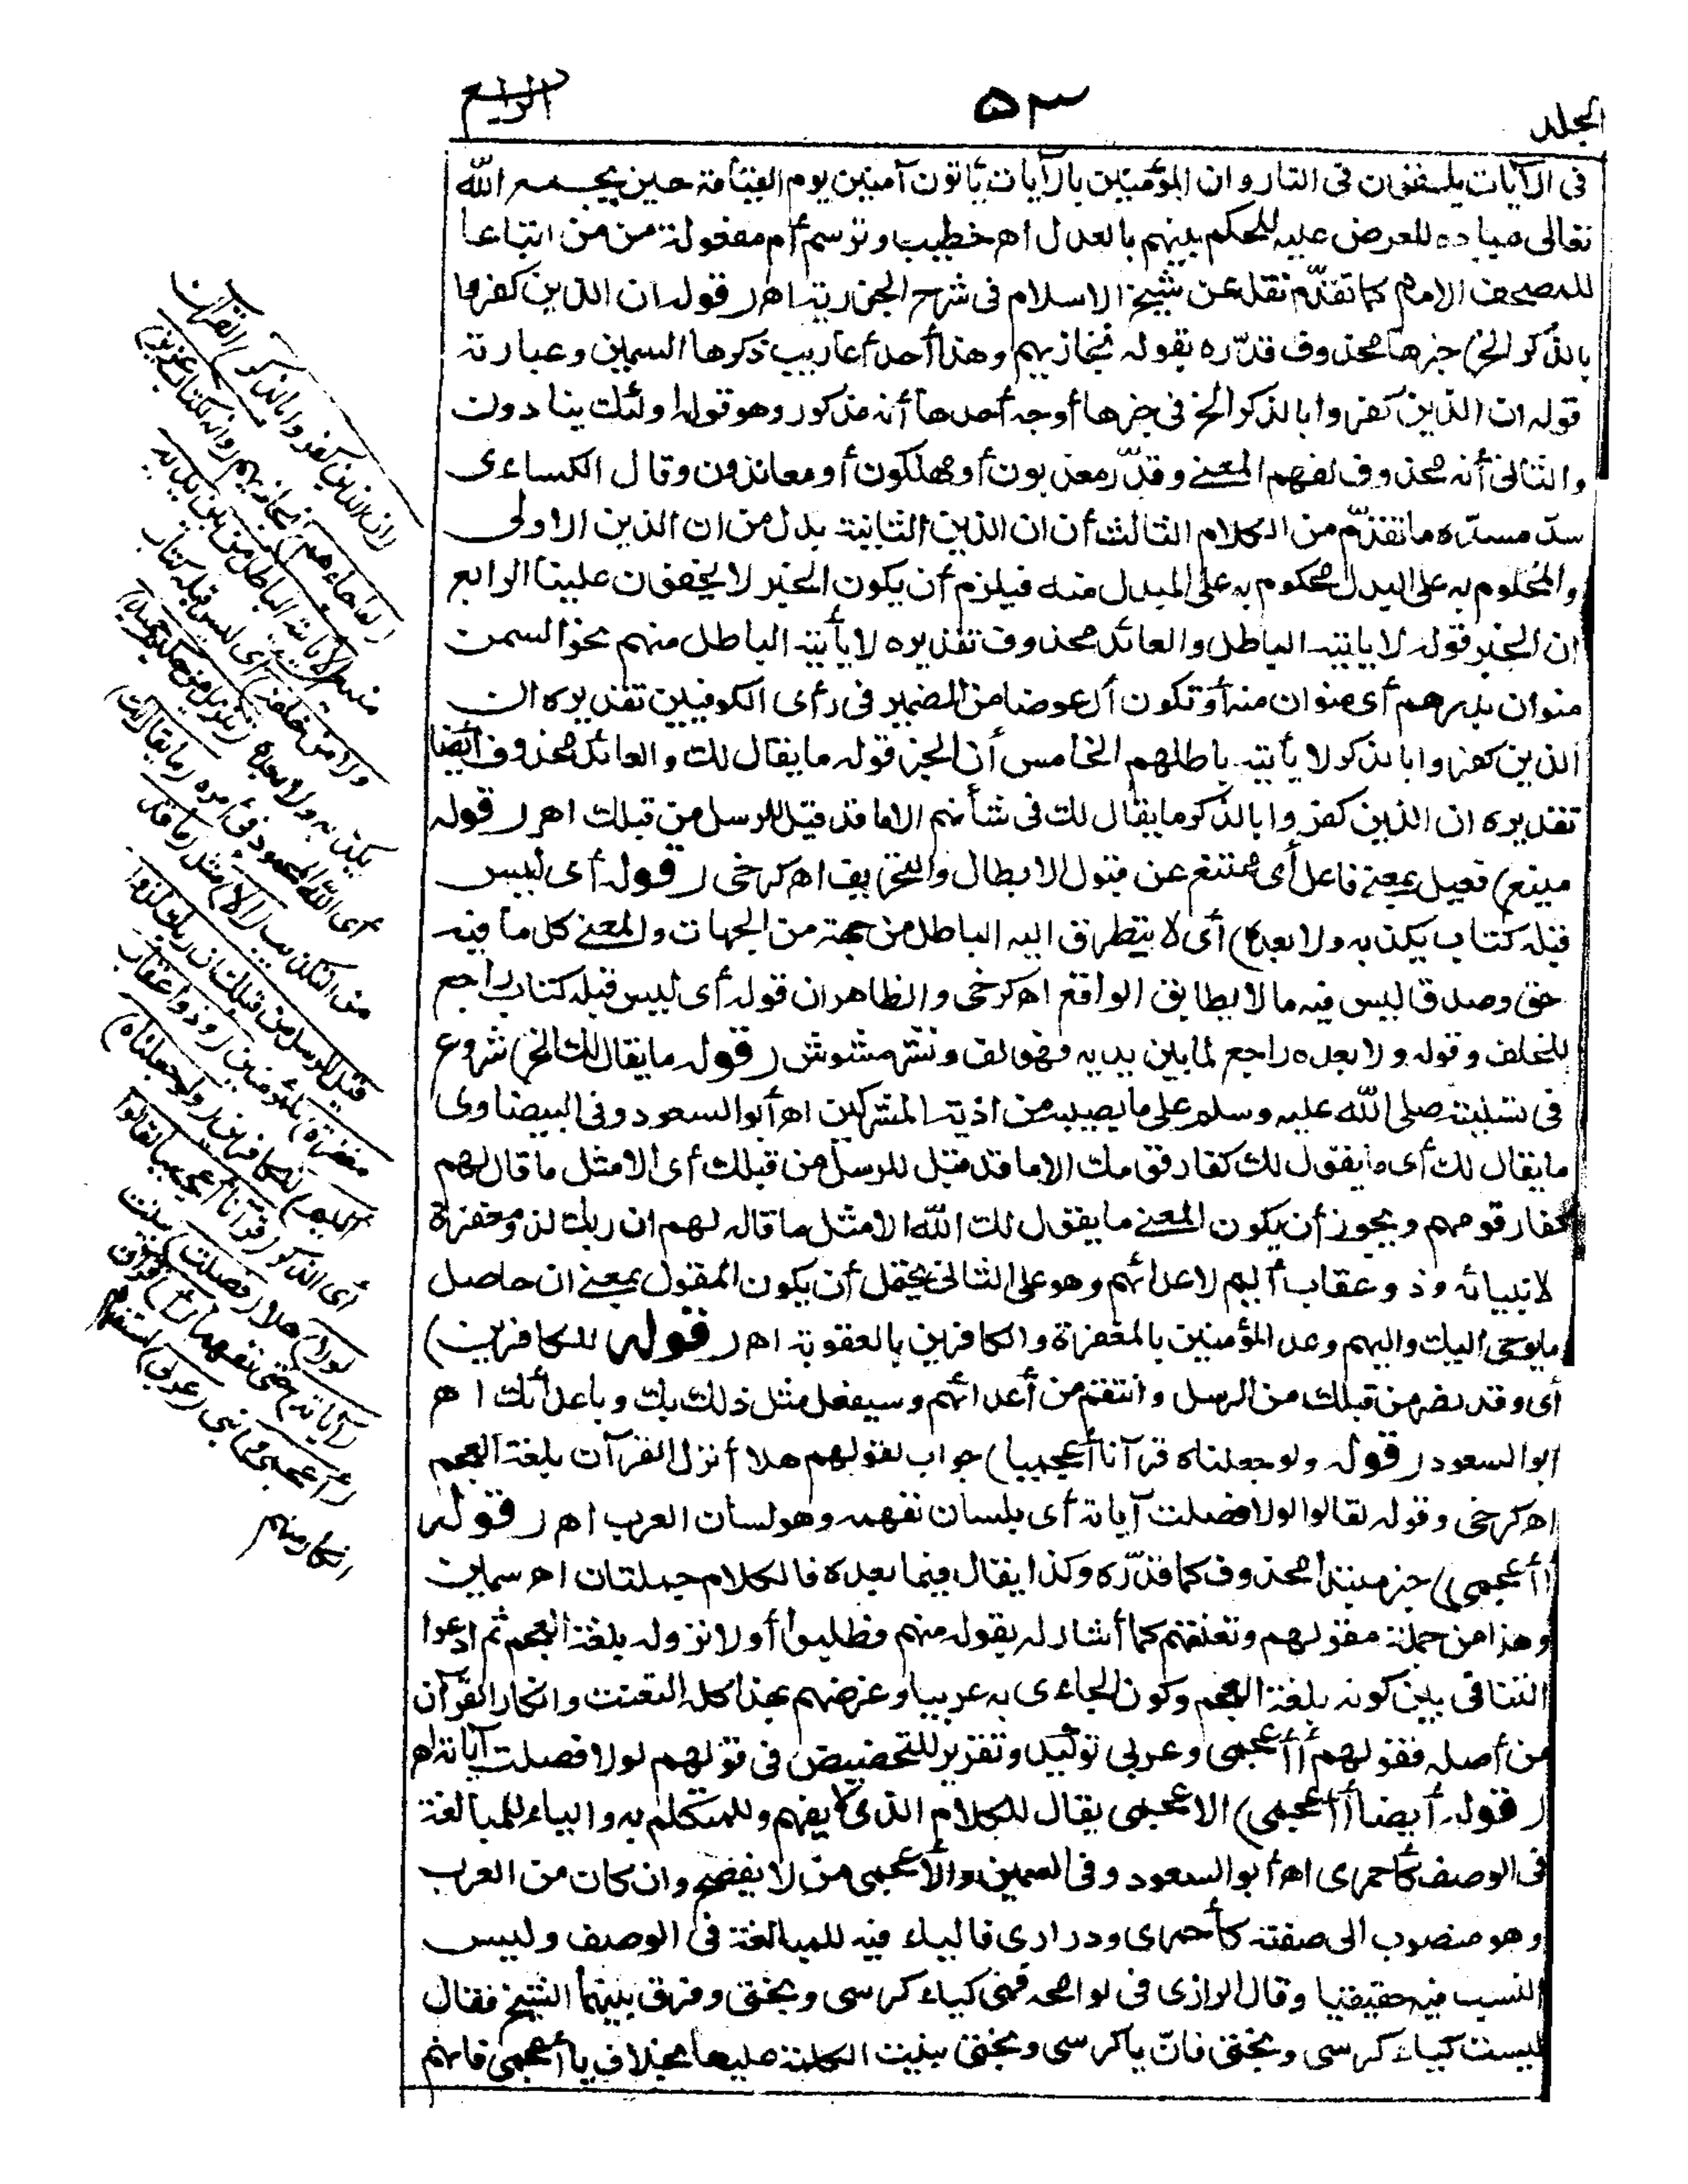 المجلد
٥٣
الرابع
فى الآيات يلقون فى النار وان المؤمنين بالآيات يأتون آمنين يوم القيامة حين يجمع الله
تعالى عباده للعرض عليه للحكم بينهم بالعدل اه خطيب وترسم أم مفعولة من من اتباعا
للمصحف الامام كما تقدّم نقله عن شيخ الاسلام فى شرح الجزرية اه (قوله ان الذين كفروا
بالذكر الخ) خبرها محذوف قدّره بقوله نجازيهم وهذا أحد أعاريب ذكرها السمين وعبارته
قوله ان الذين كفروا بالذكر الخ فى خبرها أوجه أحدها أنه مذكور وهو قوله اولئك ينادون
والثانى أنه محذوف لفهم المعنى وقدّر معذبون أو مهلكون أو معاندون وقال الكساءى
سدّ مسدّه ما تقدّم من الكلام الثالث أن ان الذين الثانية بدل من ان الذين الاولى
والمحكوم به على البدل محكوم به على المبدل منه فيلزم أن يكون الخبر لا يخفون علينا الرابع
ان الخبر قوله لا يأتيه الباطل والعائد محذوف تقديره لا يأتيه الباطل منهم نحو السمن
منوان بدرهم أى منوان منه أو تكون أل عوضا من الضمير فى رأى الكوفيين تقديره ان
الذين كفروا بالذكر لا يأتيه باطلهم الخامس أن الخبر قوله ما يقال لك والعائد محذوف أيضا
تقديره ان الذين كفروا بالذكر ما يقال لك فى شأنهم الا ما قد قيل للرسل من قبلك اه (قوله
منيع) فعيل بمعنى فاعل أى ممتنع عن قبول الابطال والتحريف اه كرخى (قوله أى ليس
قبله كتاب يكذبه ولا بعده) أى لا يتطرق اليه الباطل من جهة من الجهات والمعنى كل ما فيه
حق وصدق ليس فيه ما لا يطابق الواقع اه كرخى والظاهر ان قوله أى ليس قبله كتاب راجع
للخلف وقوله ولا بعده راجع لما بين يديه فهو لف ونشر مشوش (قوله ما يقال لك الخ) شروع
فى تسليته صلى الله عليه وسلم على ما يصيبه من اذية المشركين اه أبو السعود وفى البيضاوى
ما يقال لك أى ما يقول لك كفار قومك الا ما قد قيل للرسل من قبلك أى الا مثل ما قال لهم
كفار قومهم ويجوز أن يكون المعنى ما يقول لك الله الا مثل ما قاله لهم ان ربك لذو مغفرة
لانبيائه وذو عقاب أليم لاعدائهم وهو على الثانى يحتمل أن يكون المقول بمعنى ان حاصل
ما يوحى اليك واليهم وعد المؤمنين بالمغفرة والكافرين بالعقوبة اه (قوله للكافرين)
أى وقد نصر من قبلك من الرسل وانتقم من أعدائهم وسيفعل مثل ذلك بك وباعدائك اه
أبو السعود (قوله ولو جعلناه قرآنا أعجميا) جواب لقولهم هلا أنزل القرآن بلغة العجم
اه كرخى وقوله لقالوا لولا فصلت آياته أى بلسان نفهمه وهو لسان العرب اه (قوله
أأعجمى) خبر مبتدأ محذوف كما قدّره وكذا يقال فيما بعده فالكلام جملتان اه سمين
وهذا من جملة مقولهم وتعنتهم كما أشار له بقوله منهم فطلبوا أولا نزوله بلغة العجم ثم ادعوا
التنافى بين كونه بلغة العجم وكون الجاءى به عربيا وغرضهم بهذا كله التعنت وانكار القرآن
من أصله فقولهم أأعجمى وعربى توكيد وتقرير للتحضيض فى قولهم لولا فصلت آياته اه
(قوله أيضا أأعجمى) الاعجمى يقال للكلام الذى لا يفهم وللمتكلم به والياء للمبالغة
فى الوصف كأحمرى اه أبو السعود وفى السمين والأعجمى من لا يفصح وان كان من العرب
وهو منسوب الى صفته كأحمرى ودوارى فالياء فيه للمبالغة فى الوصف وليس
النسب فيه حقيقيا وقال الرازى فى لوامحه فهى كياء كرسى وبختى وفرق بينهما الشيخ فقال
ليست كياء كرسى وبختى فانّ ياء كرسى وبختى بنيت الكلمة عليها بخلاف ياء أعجمى فانهم
(ان الذين كفروا بالذكر) القرآن
(لما جاءهم) نجازيهم (وانه لكتاب عزيز)
منيع (لا يأتيه الباطل من بين يديه
ولا من خلفه) أى ليس قبله كتاب
يكذبه ولا بعده (تنزيل من حكيم حميد)
أى الله المحمود فى أمره (ما يقال لك)
من التكذيب (الا) مثل (ما قد
قيل للرسل من قبلك ان ربك لذو
مغفرة) للمؤمنين (وذو عقاب
أليم) للكافرين (ولو جعلناه)
أى الذكر (قرآنا أعجميا لقالوا
لولا) هلا (فصلت) بينت
(آياته) حتى نفهمها (أ) قرآن
(أعجمى و) نبى (عربى) استفهام
انكار منهم